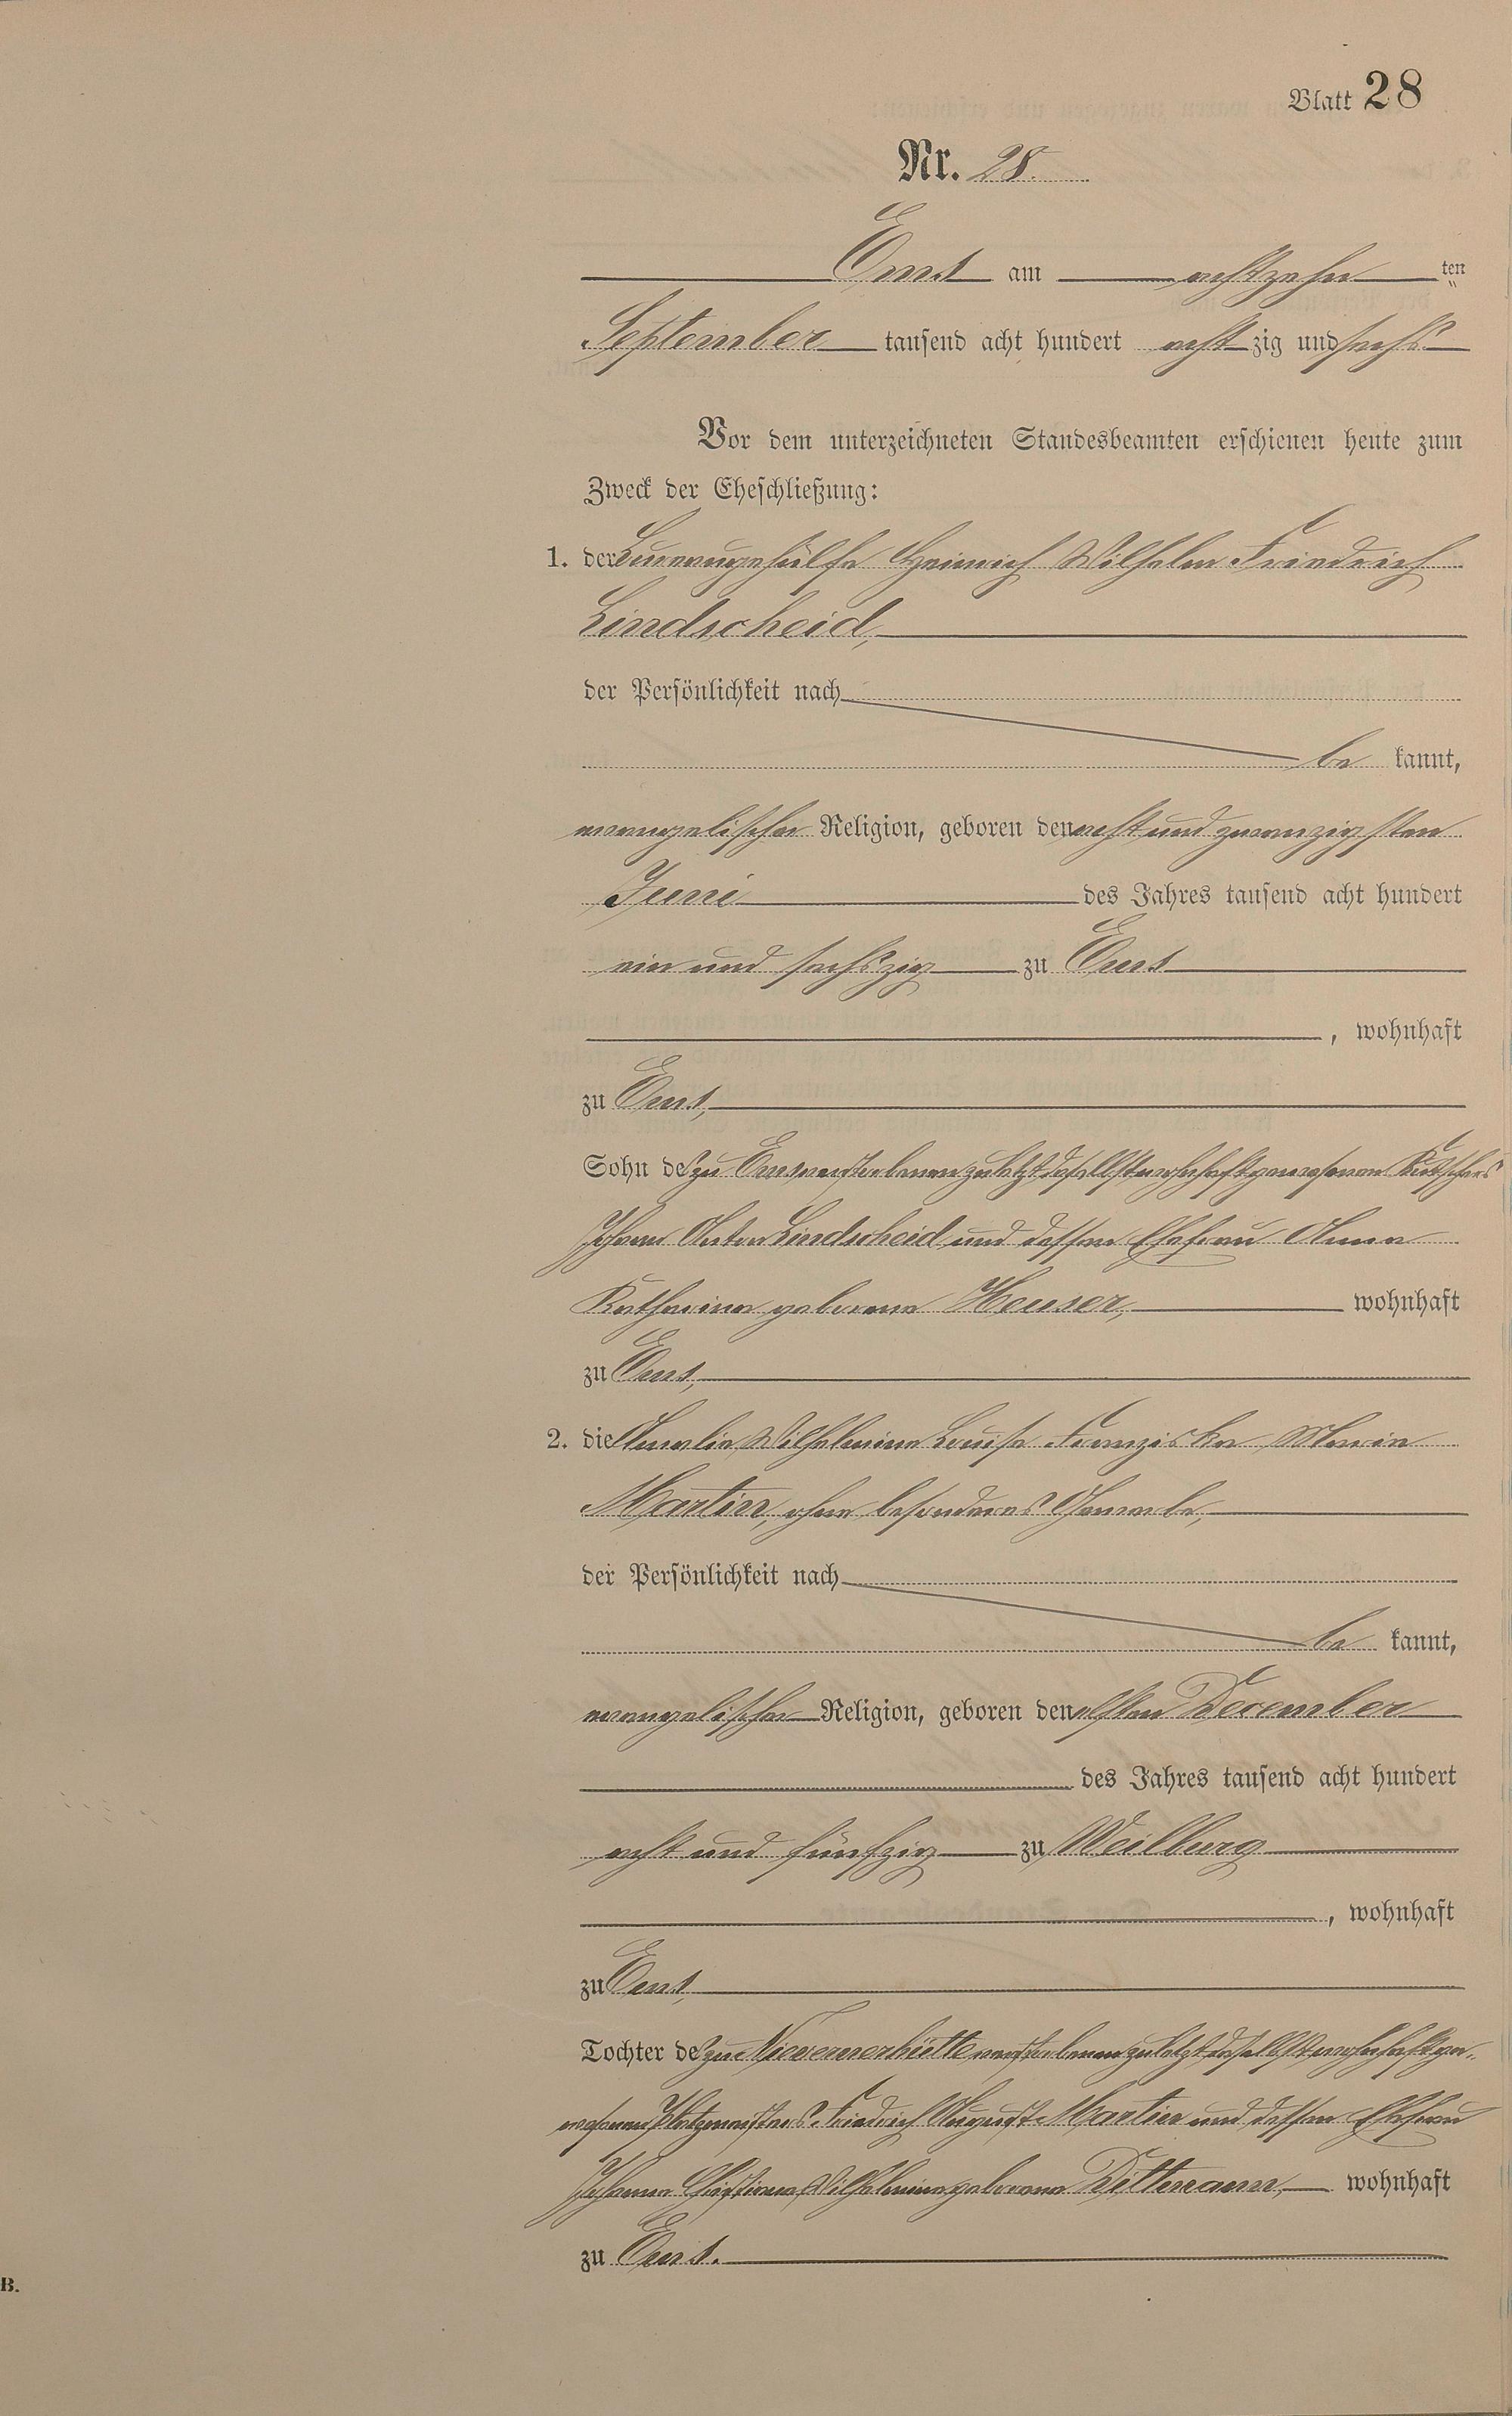 Blatt 28
Nr. 28.
Ems am achtzehn ten
September tausend acht hundert acht zig und sechs
Vor dem unterzeichneten Standesbeamten erschienen heute zum
Zweck der Eheschließung:
1. der Bureaugehülfe Heinrich Wilhelm Friedrich
Lindscheid,
der Persönlichkeit nach
be kannt,
evangelischer Religion, geboren den acht und zwanzigsten
Juni des Jahres tausend acht hundert
ein und sechszig zu Ems
, wohnhaft
zu Ems,
Sohn des zu Ems verstorbenen zuletzt daselbst wohnhaft gewesenen Kutschers
Johann Anton Lindscheid und dessen Ehefrau Anna
Katharina geborene Heuser, wohnhaft
zu Ems,
2. die Amalie Wilhelmine Louise Franziska Maria
Martin, ohne besonderes Gewerbe,
der Persönlichkeit nach
be kannt,
evangelischer Religion, geboren den elften December
des Jahres tausend acht hundert
acht und fünfzig zu Weilburg
, wohnhaft
zu Ems,
Tochter des zu Nievernerhütte verstorbenen zuletzt daselbst wohnhaft ge-
wesenen Platzmeisters Friedrich August Martin und dessen Ehefrau
Johanna Christiana Wilhelmine geborene Dittmann, wohnhaft
zu Ems.
B.